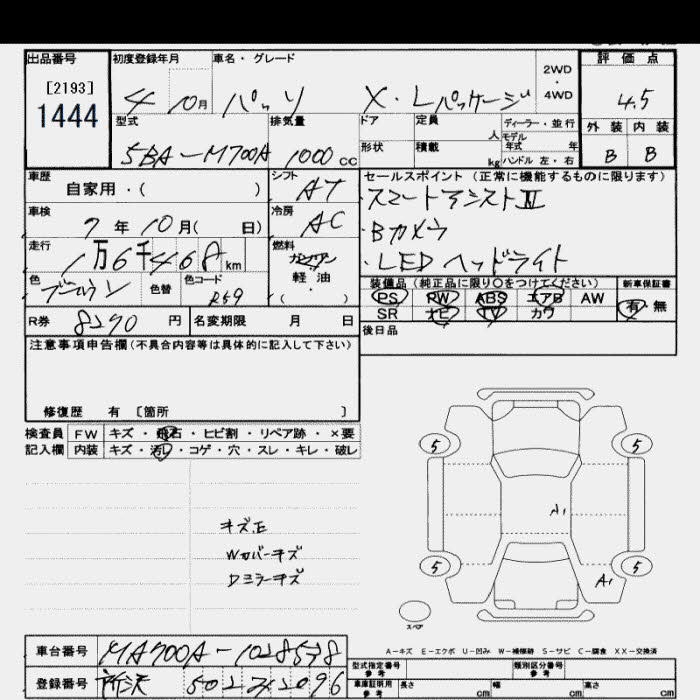 出品番号 初度登録年月 車名・グレード 2WD・4WD 評価点
[2193]
1444
4 10月 パッソ X・Lパッケージ 4.5
型式 排気量 ドア 定員 人 ディーラー・並行 外装 内装
5BA-M700A 1000 CC 形状 積載 kg モデル年式 年 ハンドル 左・右 B B
車歴 自家用・( ) シフト AT セールスポイント (正常に機能するものに限ります)
・スマートアシストⅢ
車検 7年10月( 日) 冷房 AC ・Bカメラ
走行 1万6千468km 燃料 ガソリン 軽・油 ・( ) ・LEDヘッドライト
色 ブラウン 色替 色コード R59 装備品 (純正品に限り○をつけてください) 新車保証書
PS PW ABS エアB AW 有・無
SR ナビ TV カワ
R券 8290円 名変期限 月 日 後日品
注意事項申告欄(不具合内容等は具体的に記入して下さい)
修復歴 有 〔箇所 〕
検査員 FW キズ・飛石・ヒビ割・リペア跡・×要
記入欄 内装 キズ・汚れ・コゲ・穴・スレ・キレ・破レ
5 5
A1
キズ.E
Wカバーキズ
Dミラーキズ
5 5
A1
スペア
A-キズ E-エクボ U-凹み W-補修跡 S-サビ C-腐食 XX-交換済
車台番号 MA700A-1028538
型式指定番号 参考 類別区分番号 参考
登録番号 所沢 502
車庫証明用 参考 長さ cm 幅 cm 高さ cm